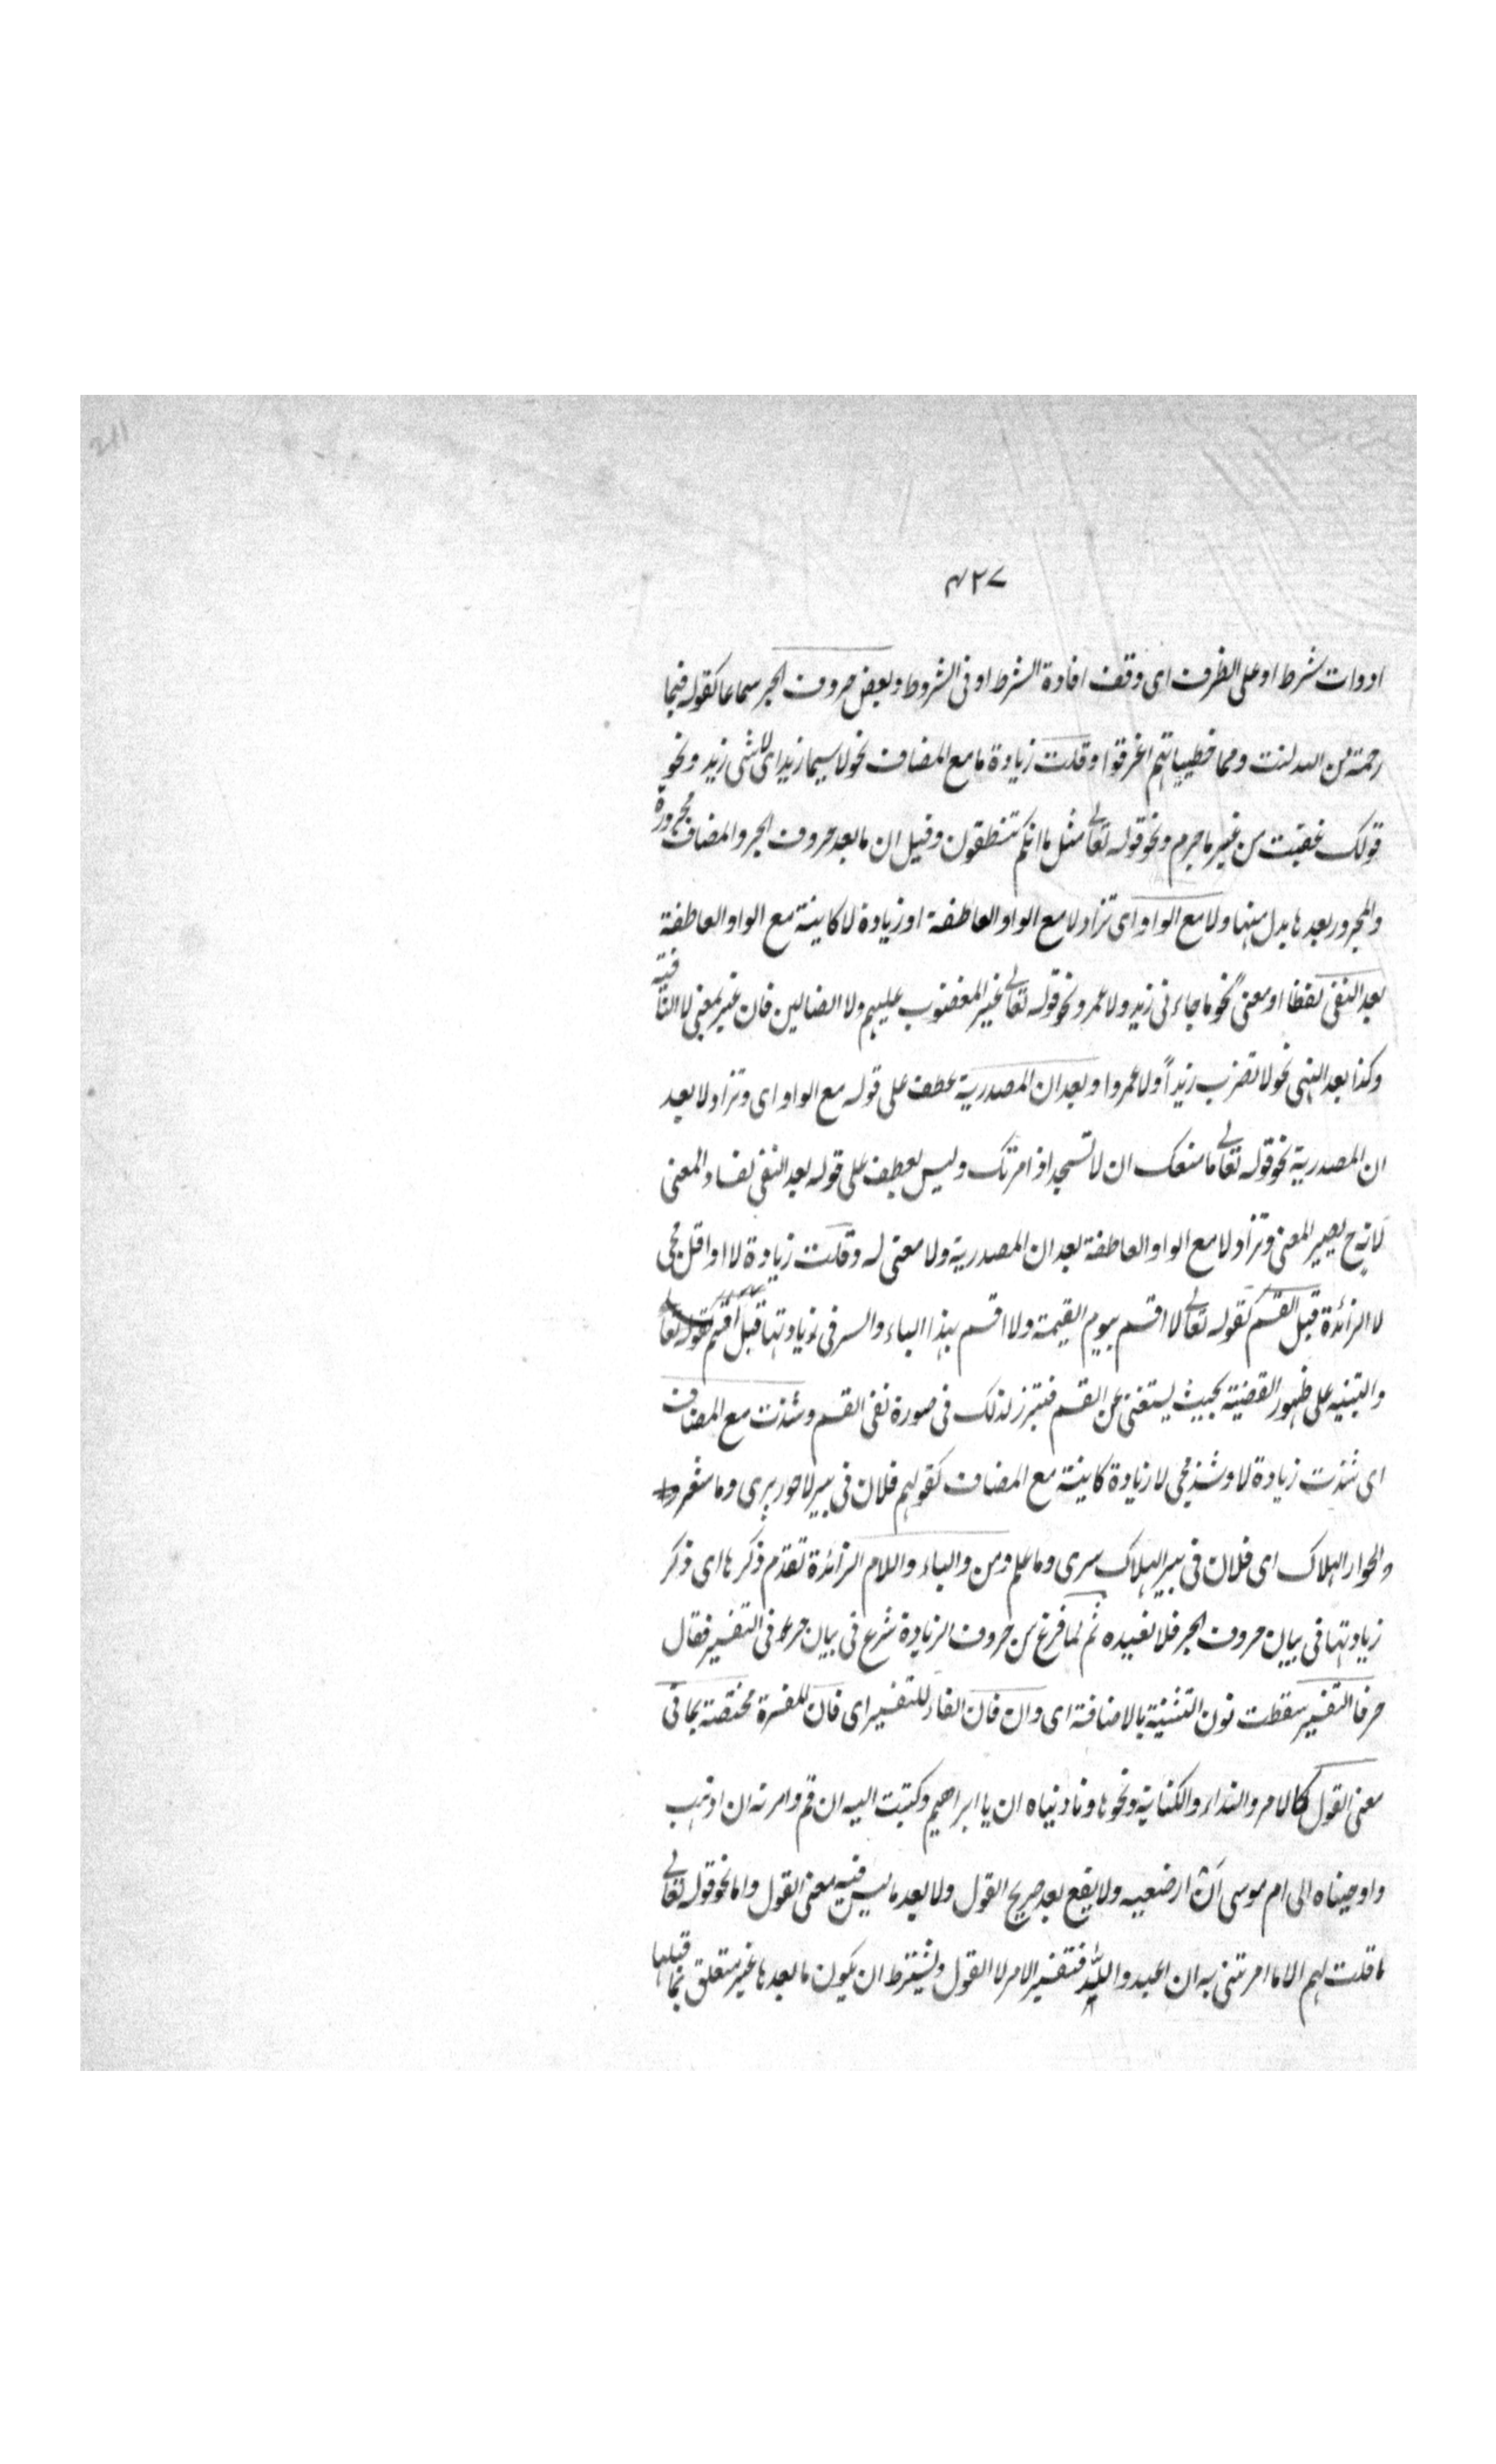 ٤٢٧
ادوات شرط او على الظرف اى وقف افادة الشرط او فى الشروط وبعض حروف الجر سماعا كقوله فبما
رحمة من الله لنت ومما خطيياتهم اغرقوا وقلت زيادة ما مع المضاف نحو لا سيما زيد اى لا شى زيد ونحو
قولك غضبت من غير ما جرم ونحو قوله تعالى مثل ما انكم تنطقون وقيل ان ما بعد حروف الجر والمضاف مجرورة
والمجرور بعدها بدل منها ولا مع الواو اى تزاد لا مع الواو العاطفة او زيادة لا كاينة مع الواو العاطفة
بعد النفى لفظا او معنى نحو ما جاءنى زيد ولا عمرو ونحو قوله تعالى غير المغضوب عليهم ولا الضالين فان غير بمعنى لا النافية
وكذا بعد النهى نحو لا تضرب زيداً ولا عمروا وبعد ان المصدرية عطف على قوله مع الواو اى وتزاد لا بعد
ان المصدرية نحو قوله تعالى ما منعك ان لا تسجد اذ امرتك وليس بعطف على قوله بعد النفى لفساد المعنى
لانه ح يصير المعنى وتزاد لا مع الواو العاطفة بعد ان المصدرية ولا معنى له وقلت زيادة لا او اقل مجى
لا الزائدة قبل القسم كقوله تعالى لا اقسم بيوم القيمة ولا اقسم بهذا البلد والسر فى زيادتها قبل اقسم
والتنبيه على ظهور القضية بحيث يستغنى عن القسم فتبرز لذلك فى صورة نفى القسم وشذت مع المضاف
اى شذت زيادة لا وشذ مجى لا زيادة كاينة مع المضاف كقولهم فلان فى بير لا حور سرى وما شعر
والحوار الهلاك اى فلان فى بير الهلاك سرى وما علم ومن والباء واللام الزائدة تقدم ذكرها اى ذكر
زيادتها فى بيان حروف الجر فلا نعيده ثم لما فرغ من حروف الزيادة شرع فى بيان حرفى التفسير فقال
حرفا التفسير سقطت نون التثنية بالاضافة اى وان فان الفاء للتفسير اى فان المفسرة مختصة بما فى
معنى القول كالامر والنداء والكتابة ونحوها وناديناه ان يا ابراهيم وكتبت اليه ان قم وامرته ان اذهب
واوحيناه الى ام موسى ان ارضعيه ولا يقع بعد صريح القول ولا بعد ما ليس فيه معنى القول واما نحو قوله تعالى
ما قلت لهم الا ما امرتنى به ان اعبدوا الله فتفسير الامر لا القول ويشترط ان يكون ما بعدها غير متعلق بما قبلها